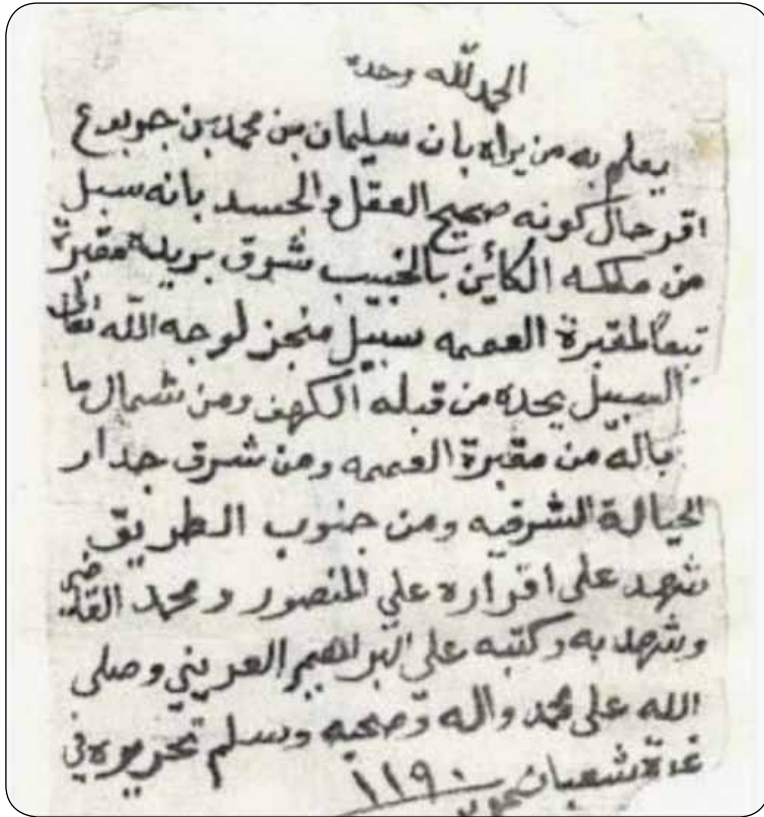 الحمد لله وحده
يعلم به من يراه بان سليمان بن محمد بن جوبوع
اقر حال كونه صحيح العقل والحسد بانه سبل
من ملكه الكائن بالخبيب شرق بريده مقبرة
تبعاً لمقبرة العممه سبيل منجز لوجه الله تعالى
السبيل يحده من قبله الكهف ومن شمال ما
باله من مقبرة العممه ومن شرق جدار
الحيالة الشرقيه ومن جنوب الطريق
شهد على اقراره علي المنصور ومحمد القاضي
وشهد به وكتبه علي البراهيم العريني وصلى
الله على محمد واله وصحبه وسلم تحريره في
غرة شعبان ١١٩٠